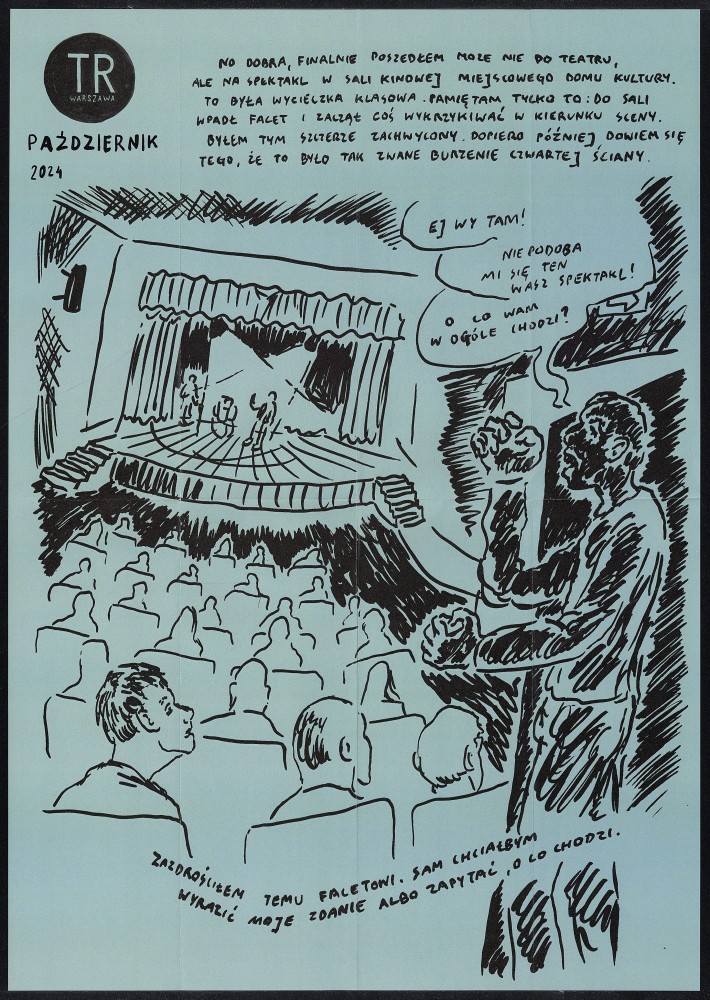 TR
WARSZAWA
PAŹDZIERNIK
2024
NO DOBRA, FINALNIE POSZEDŁEM MOŻE NIE DO TEATRU,
ALE NA SPEKTAKL W SALI KINOWEJ MIEJSCOWEGO DOMU KULTURY.
TO BYŁA WYCIECZKA KLASOWA. PAMIĘTAM TYLKO TO: DO SALI
WPADŁ FACET I ZACZĄŁ COŚ WYKRZYKIWAĆ W KIERUNKU SCENY.
BYŁEM TYM SZCZERZE ZACHWYCONY. DOPIERO PÓŹNIEJ DOWIEM SIĘ
TEGO, ŻE TO BYŁO TAK ZWANE BURZENIE CZWARTEJ ŚCIANY.
EJ WY TAM!
NIE PODOBA
MI SIĘ TEN
WASZ SPEKTAKL!
O CO WAM
W OGÓLE CHODZI?
ZAZDROŚCIŁEM TEMU FACETOWI. SAM CHCIAŁBYM
WYRAZIĆ MOJE ZDANIE ALBO ZAPYTAĆ, O CO CHODZI.